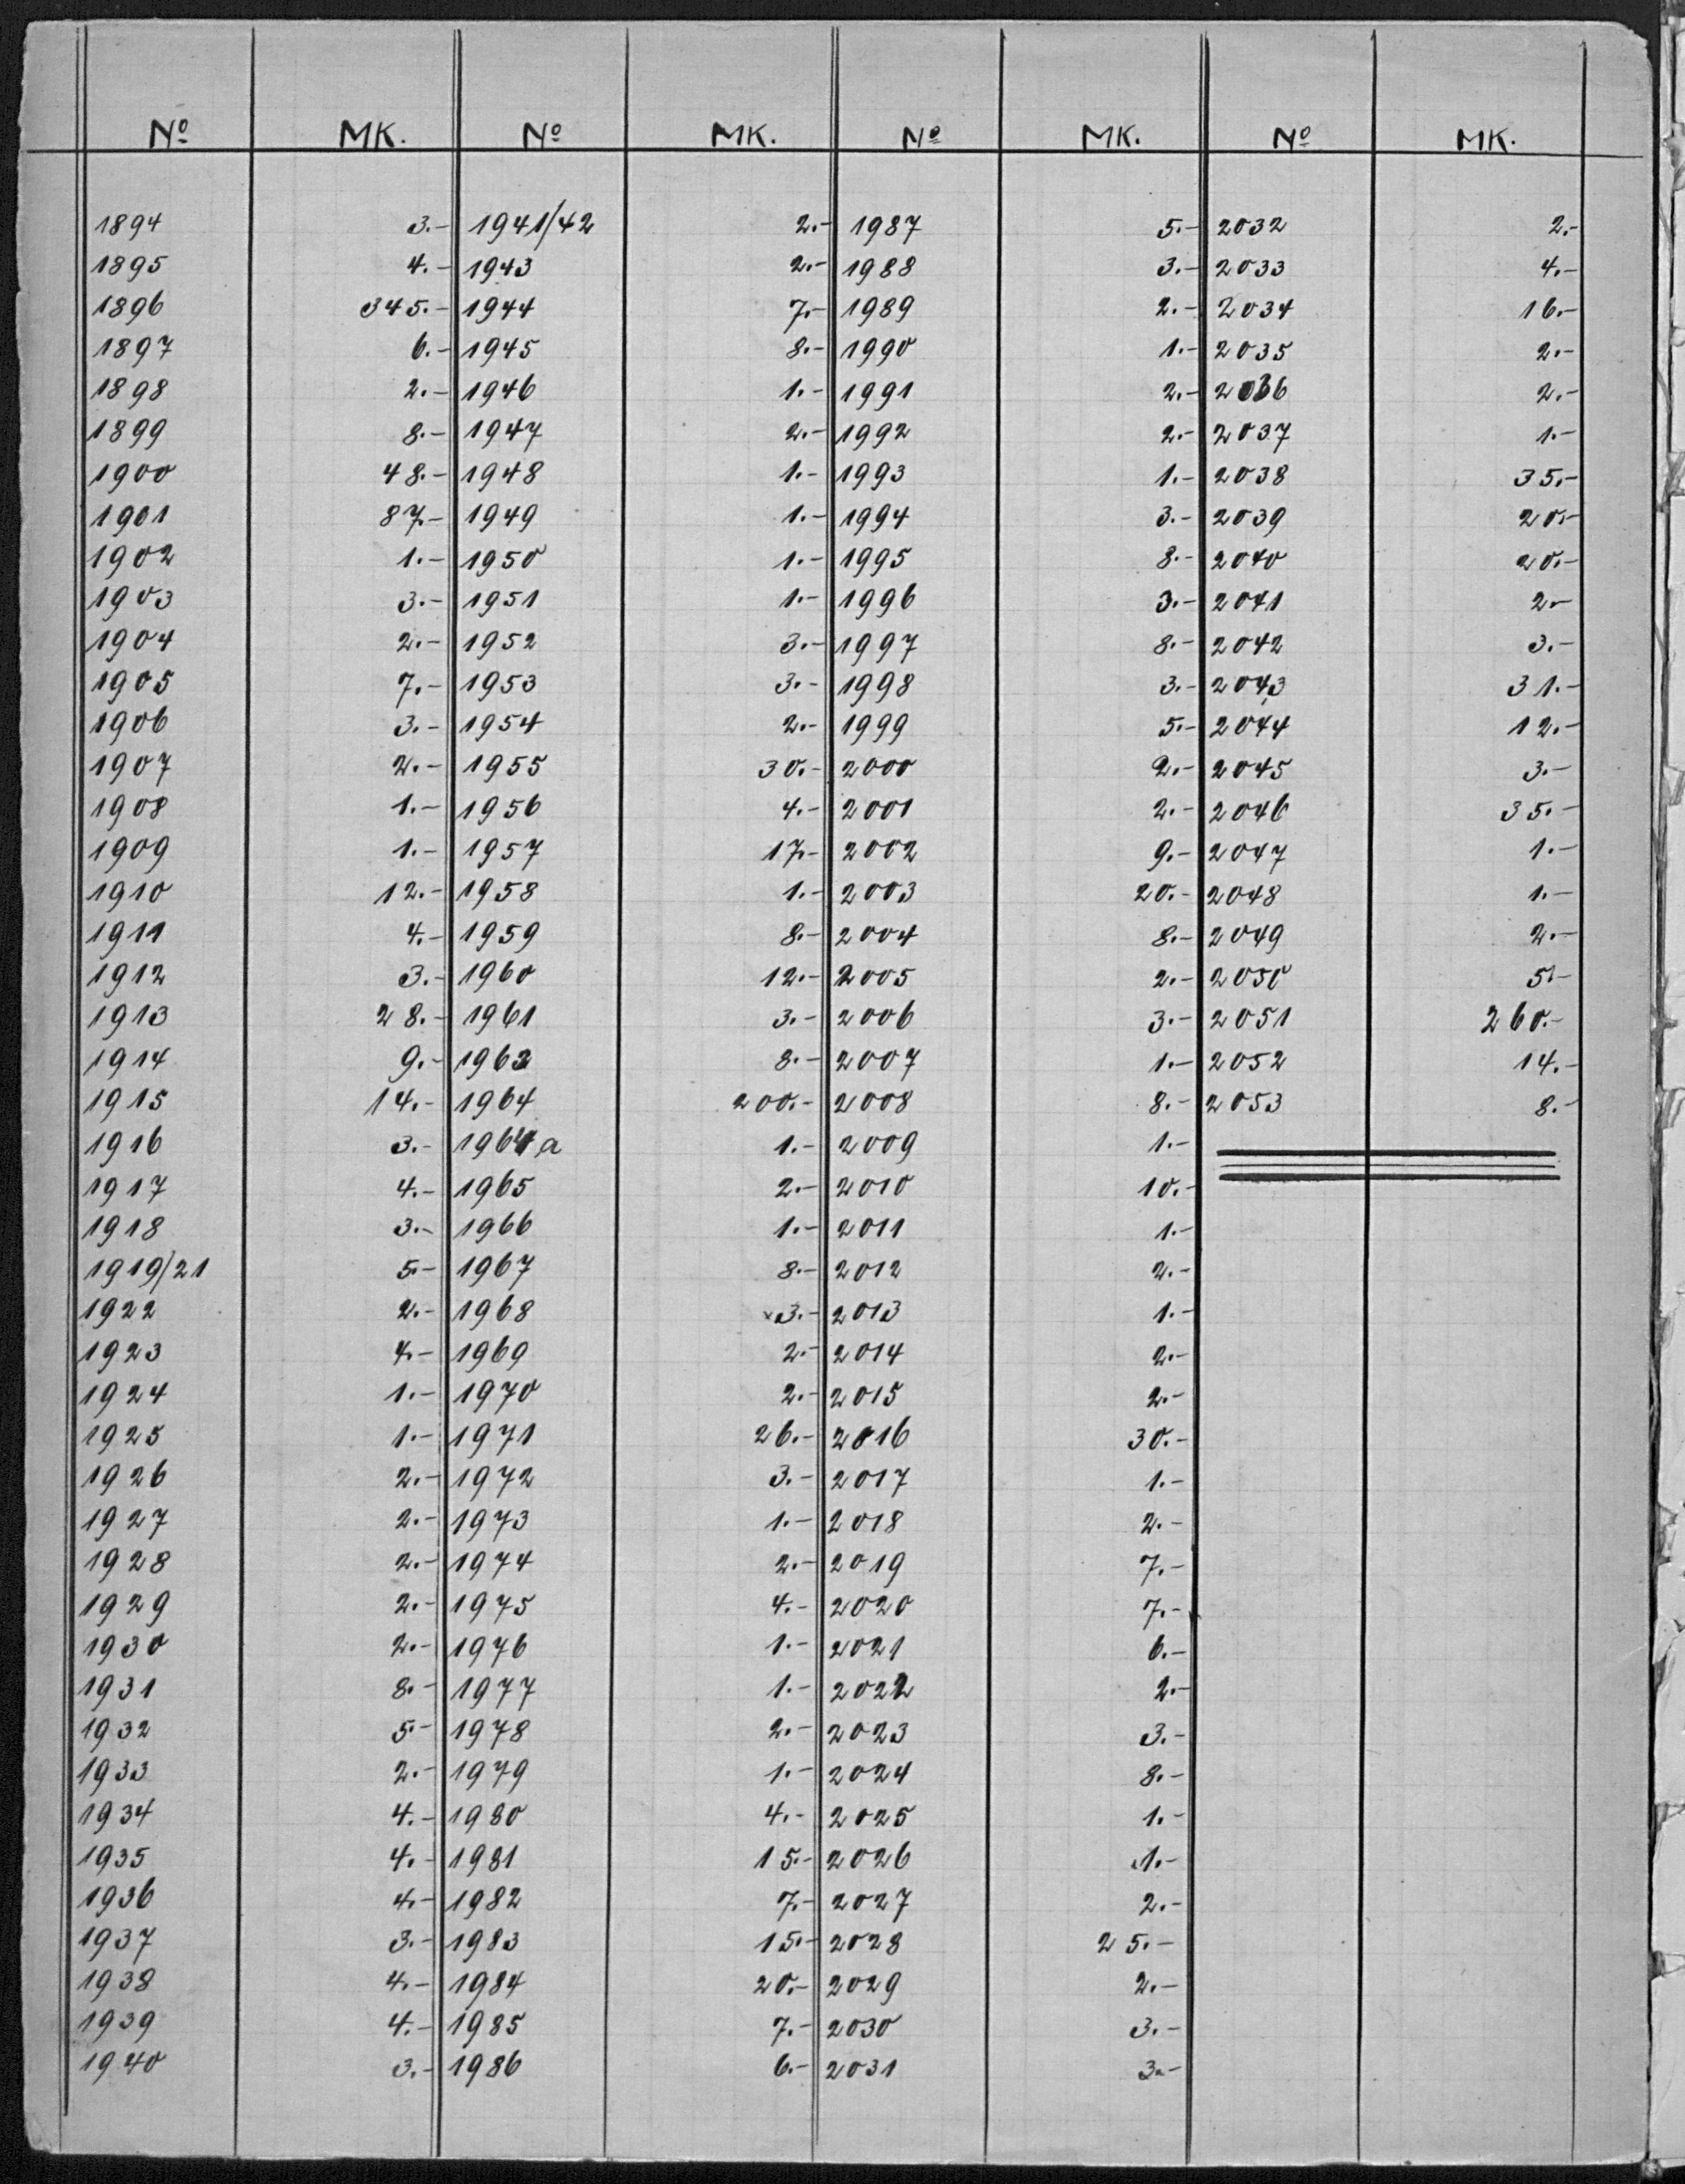 Nº MK. Nº MK. Nº MK. Nº MK.
1894 3.- 1941/42 2.- 1987 5.- 2032 2.-
1895 4.- 1943 2.- 1988 3.- 2033 4.-
1896 345.- 1944 7.- 1989 2.- 2034 16.-
1897 6.- 1945 8.- 1990 1.- 2035 2.-
1898 2.- 1946 1.- 1991 2.- 2036 2.-
1899 8.- 1947 2.- 1992 2.- 2037 1.-
1900 48.- 1948 1.- 1993 1.- 2038 35.-
1901 87.- 1949 1.- 1994 3.- 2039 20.-
1902 1.- 1950 1.- 1995 8.- 2040 20.-
1903 3.- 1951 1.- 1996 3.- 2041 2.-
1904 2.- 1952 3.- 1997 8.- 2042 3.-
1905 7.- 1953 3.- 1998 3.- 2043 31.-
1906 3.- 1954 2.- 1999 5.- 2044 12.-
1907 2.- 1955 30.- 2000 2.- 2045 3.-
1908 1.- 1956 4.- 2001 2.- 2046 35.-
1909 1.- 1957 17.- 2002 9.- 2047 1.-
1910 12.- 1958 1.- 2003 20.- 2048 1.-
1911 4.- 1959 8.- 2004 8.- 2049 2.-
1912 3.- 1960 12.- 2005 2.- 2050 5.-
1913 28.- 1961 3.- 2006 3.- 2051 260.-
1914 9.- 1962 8.- 2007 1.- 2052 14.-
1915 14.- 1964 200.- 2008 8.- 2053 8.-
1916 3.- 1964a 1.- 2009 1.-
1917 4.- 1965 2.- 2010 10.-
1918 3.- 1966 1.- 2011 1.-
1919/21 5.- 1967 8.- 2012 2.-
1922 2.- 1968 3.- 2013 1.-
1923 4.- 1969 2.- 2014 2.-
1924 1.- 1970 2.- 2015 2.-
1925 1.- 1971 26.- 2016 30.-
1926 2.- 1972 3.- 2017 1.-
1927 2.- 1973 1.- 2018 2.-
1928 2.- 1974 2.- 2019 7.-
1929 2.- 1975 4.- 2020 7.-
1930 2.- 1976 1.- 2021 6.-
1931 8.- 1977 1.- 2022 2.-
1932 5.- 1978 2.- 2023 3.-
1933 2.- 1979 1.- 2024 8.-
1934 4.- 1980 4.- 2025 1.-
1935 4.- 1981 15.- 2026 1.-
1936 4.- 1982 7.- 2027 2.-
1937 3.- 1983 15.- 2028 25.-
1938 4.- 1984 20.- 2029 2.-
1939 4.- 1985 7.- 2030 3.-
1940 3.- 1986 6.- 2031 3.-